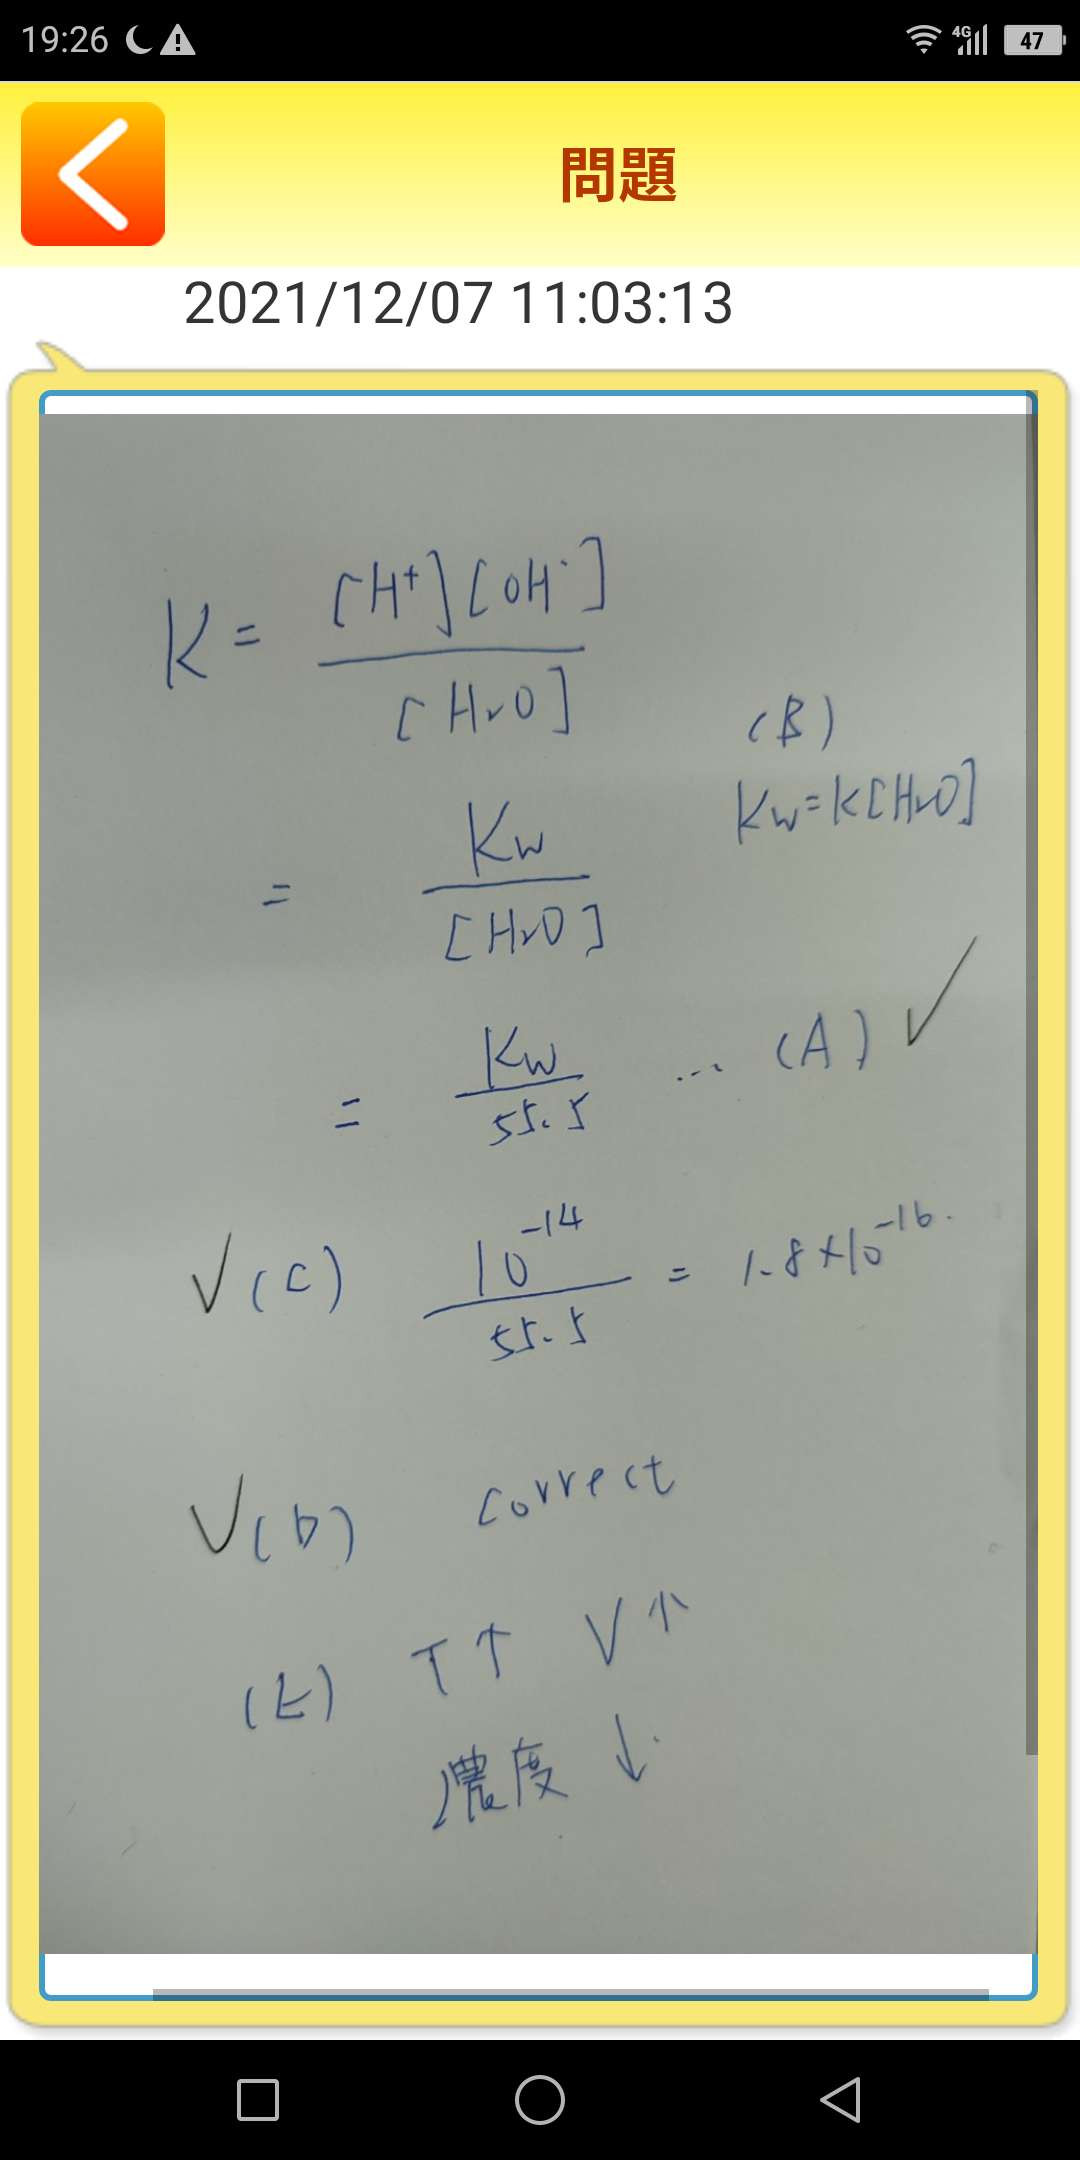 19:26 4G 47
問題
2021/12/07 11:03:13
K = [H⁺][OH⁻]
[H₂O]
(B)
Kw = K[H₂O]
= Kw
[H₂O]
= Kw
55.5 ... (A) ✓
✓(C) 10⁻¹⁴
55.5 = 1.8×10⁻¹⁶.
✓(D) correct
(E) T↑ V↑
濃度 ↓